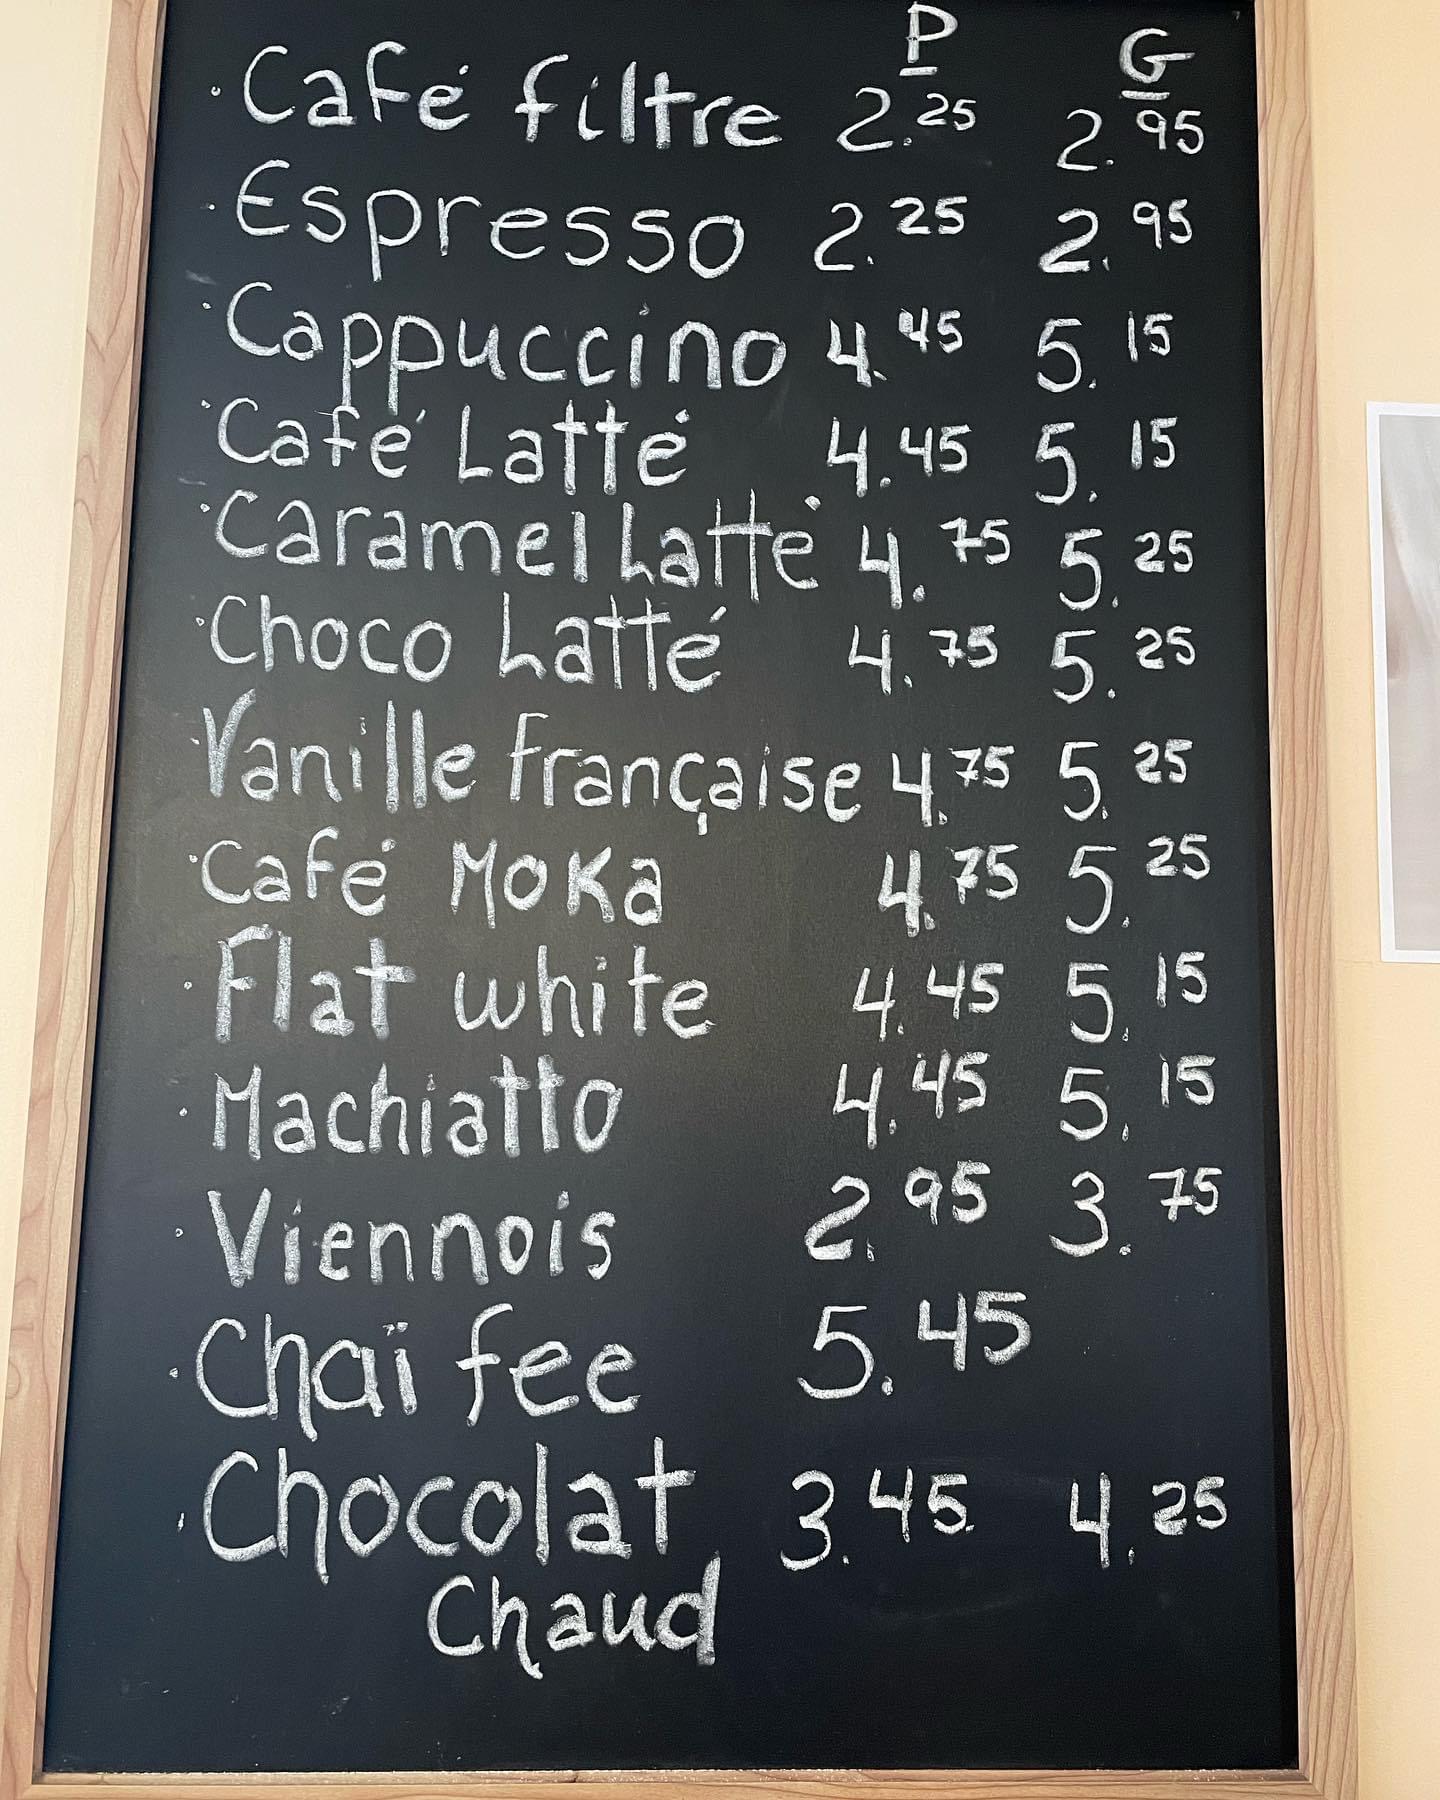 P G
Café filtre 2.25 2.95
Espresso 2.25 2.95
Cappuccino 4.45 5.15
Café Latté 4.45 5.15
Caramel Latté 4.75 5.25
Choco Latté 4.75 5.25
Vanille française 4.75 5.25
Café Moka 4.75 5.25
Flat white 4.45 5.15
Machiatto 4.45 5.15
Viennois 2.95 3.75
Chaï fee 5.45
Chocolat 3.45 4.25
Chaud